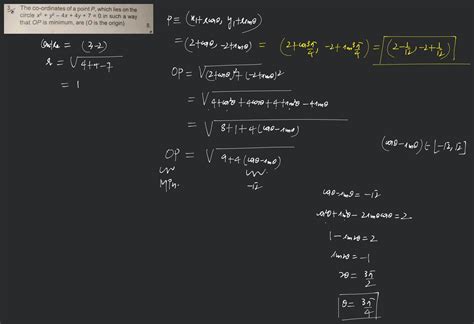 The co-ordinates of a point P, which lies on the
circle x² + y² – 4x + 4y + 7 = 0 in such a way
that OP is minimum, are (O is the origin)
Centre = (2,-2)
r = √4+4-7
= 1
P ≡ (x₁+rcosθ, y₁+rsinθ)
= (2+cosθ, -2+sinθ) = (2+cos 3π/4, -2+sin 3π/4) = (2-1/√2, -2+1/√2)
OP = √(2+cosθ)²+(-2+sinθ)²
= √4+cos²θ+4cosθ+4+sin²θ-4sinθ
= √8+1+4(cosθ-sinθ)
OP = √9+4(cosθ-sinθ)
Min. -√2
(cosθ-sinθ) ∈ [-√2, √2]
cosθ-sinθ = -√2
cos²θ+sin²θ-2sinθcosθ = 2
1-sin2θ = 2
sin2θ = -1
2θ = 3π/2
θ = 3π/4